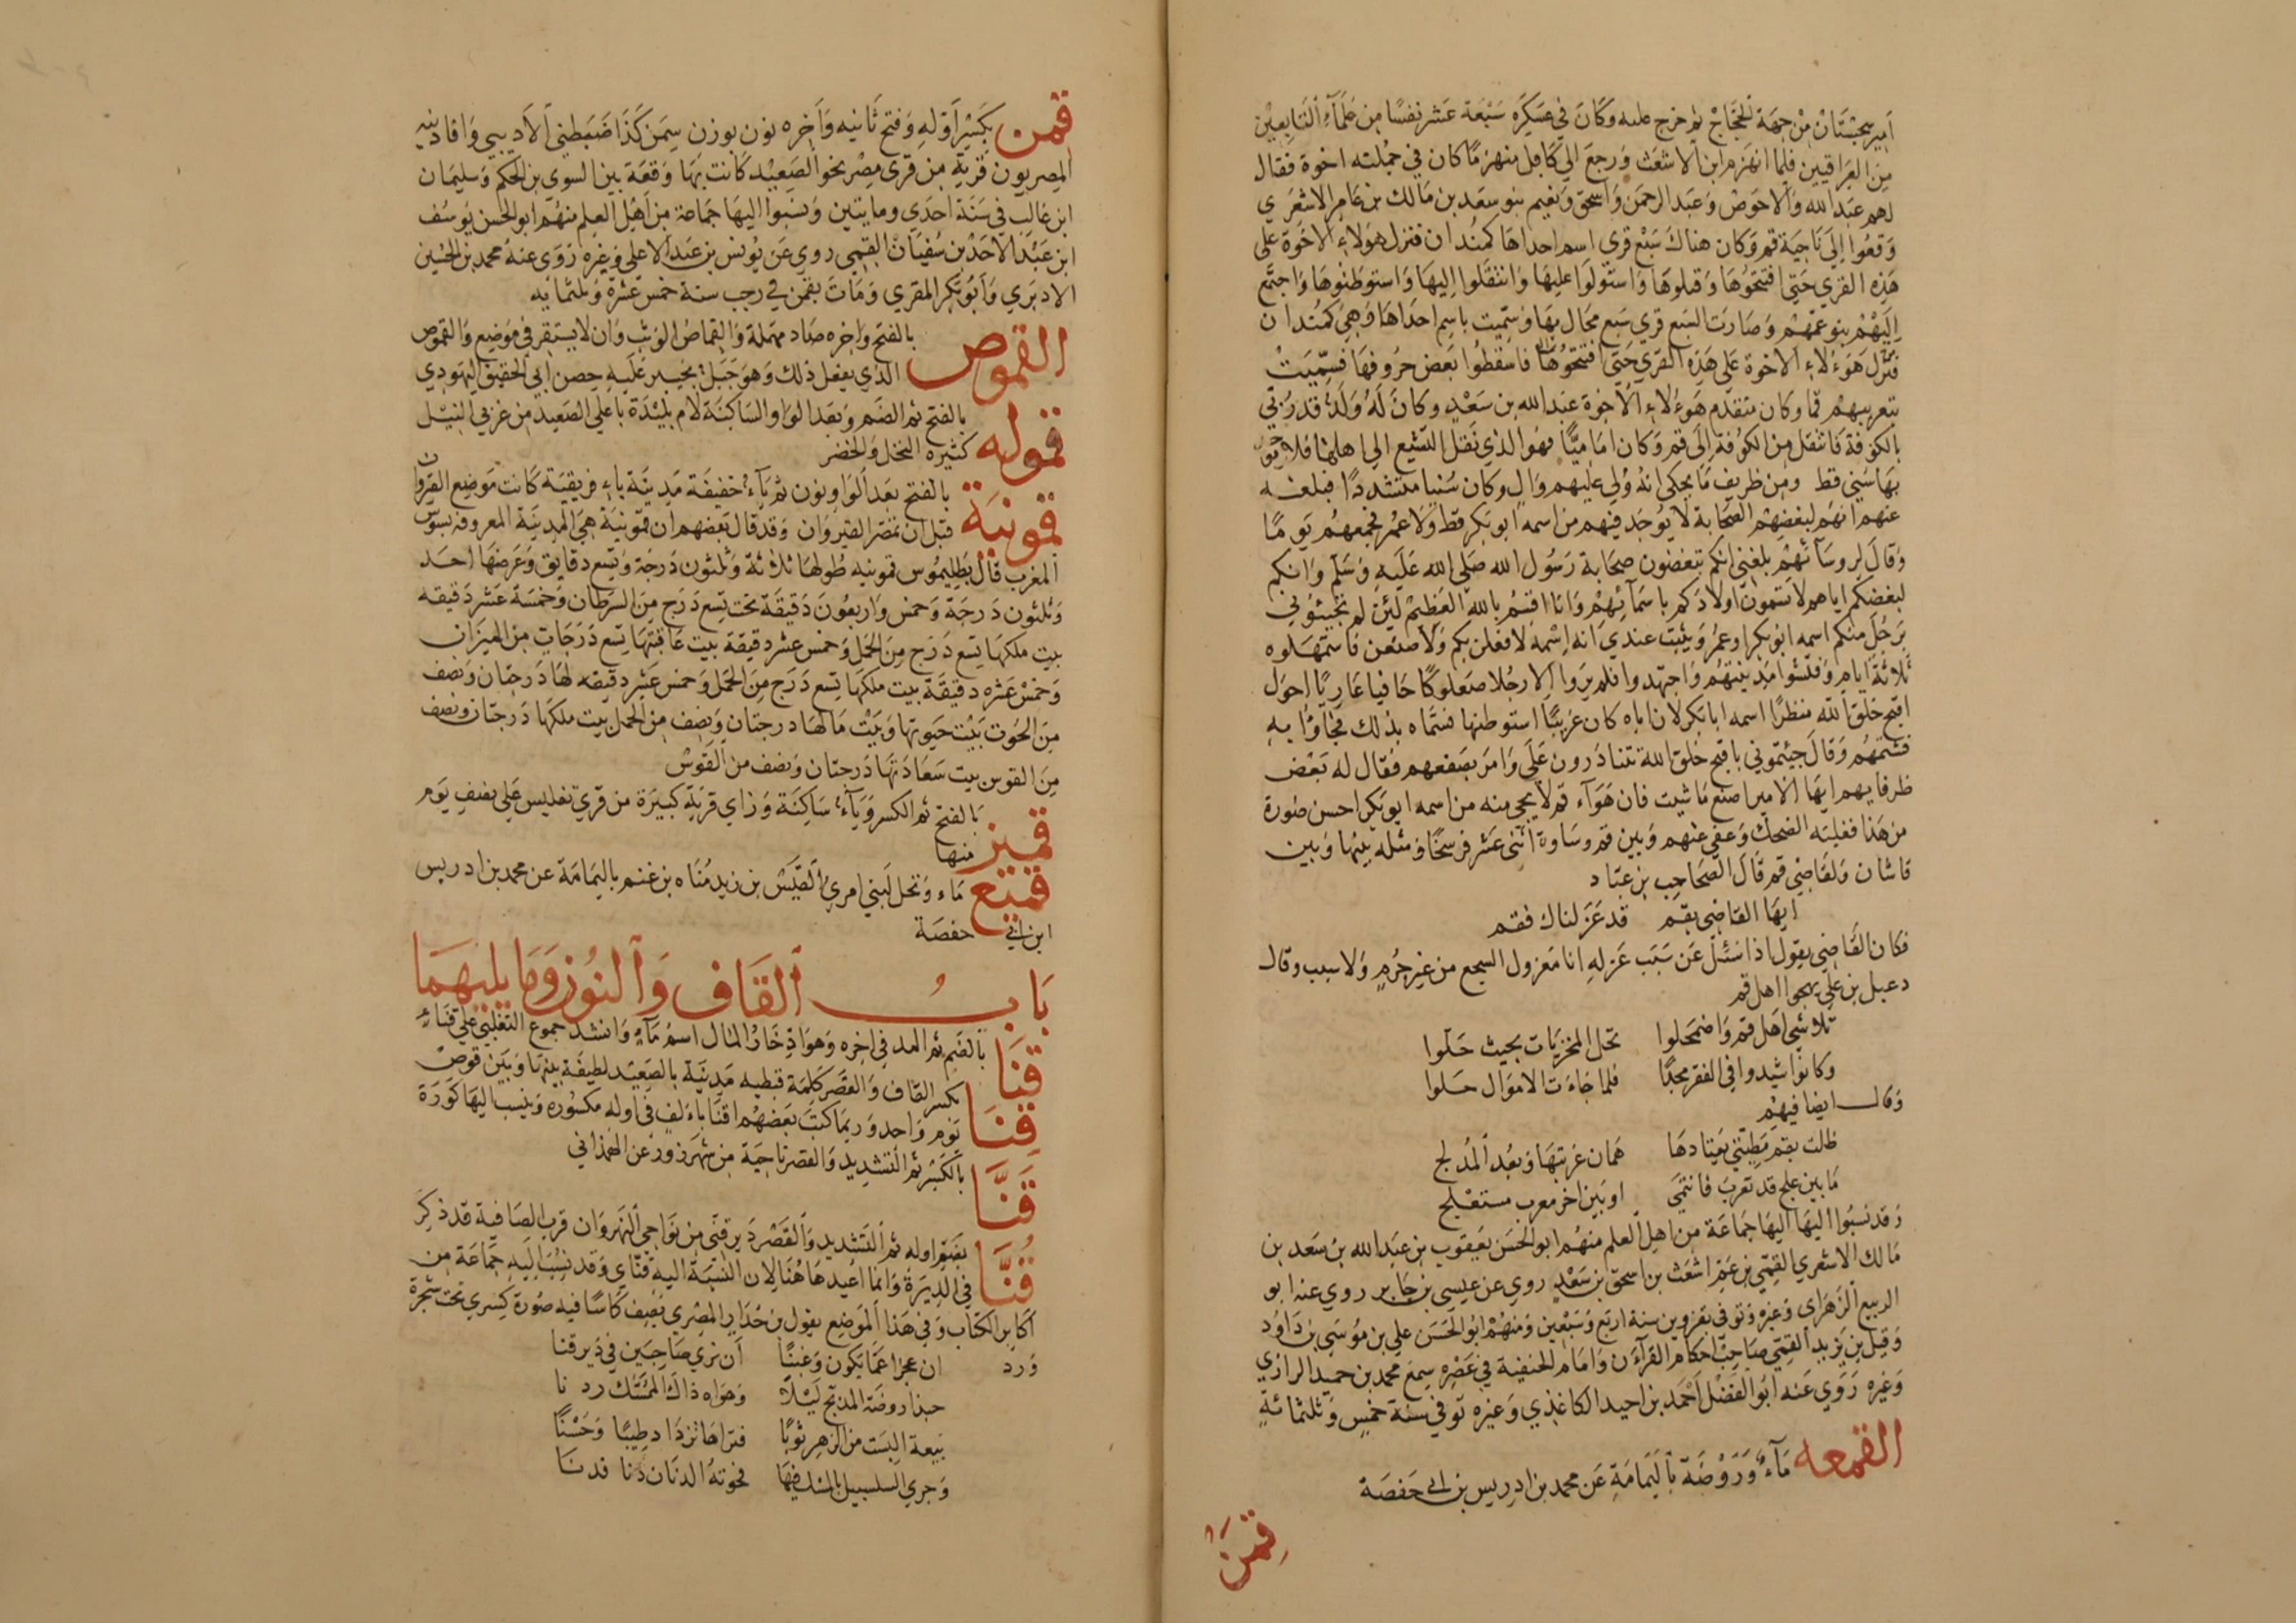 امير سجستان من جهة الحجاج ثم خرج عليه وكان في عسكره سبعة عشر نفسا من علمآء التابعين
من العراقيين فلما انهزم ابن الاشعث ورجع الي كابل منهزما كان في جملته اخوة فقال
لهم عبد الله والاحوص وعبد الرحمن واسحق ونعيم بنو سعد بن مالك بن عامر الاشعري
وقعوا الى ناحية قم وكان هناك سبع قري اسم احداها كمندان فنزل هؤلاء الاخوة على
هذه القري حتي افتتحوها وقتلوها واستولوا عليها وانتقلوا اليها واستوطنوها واجتمع
اليهم بنو عمهم وصارت السبع قري سبع محال بها وسميت باسم احداها وهي كمندان
فنزل هؤلاء الاخوة على هذه القري حتى افتتحوها فاسقطوا بعض حروفها فسميت
بتعريبهم قما وكان متقدم هؤلاء الاخوة عبد الله بن سعد وكان له ولد قد ربي
بالكوفة فانتقل من الكوفة الى قم وكان اماميا فهو الذي نقل التشيع الي اهلها فلا
بها سني قط ومن ظريف ما يحكى انه ولي عليهم وال وكان سنيا متشددا فبلغه
عنهم انهم لبغضهم الصحابة لا يوجد فيهم من اسمه ابو بكر قط ولا عمر فجمعهم يوما
وقال لروسآئهم بلغني انكم تبغضون صحابة رسول الله صلى الله عليه وسلم وانكم
لبغضكم اياهم لا تسمون اولادكم باسمآئهم وانا اقسم بالله العظيم لئن لم تجيئوني
برجل منكم اسمه ابو بكر او عمر ويثبت عندي انه اسمه لافعلن بكم ولاصنعن فاستمهلوه
ثلاثة ايام وفتشوا مدينتهم واجتهدوا فلم يروا الا رجلا صعلوكا حافيا عاريا احول
اقبح خلق الله منظرا اسمه ابا بكر لان اباه كان غريبا استوطنها فسماه بذلك فجاؤا به
فشتمهم وقال جئتموني باقبح خلق الله تتنادرون علي وامر بصفعهم فقال له بعض
ظرفايهم ايها الامير اصنع ما شيت فان هوآء قم لا يجي منه من اسمه ابو بكر احسن صورة
من هذا فغلبه الضحك وعفي عنهم وبين قم وساوة اثنى عشر فرسخا ومثله بينها وبين
قاشان ولقاضي قم قال الصاحب بن عباد
ايها القاضي بقم قد عزلناك فقم
فكان القاضي يقول اذا سئل عن سبب عزله انا معزول السجع من غير جرم ولا سبب وقال
دعبل بن علي يهجوا اهل قم
تلاشي اهل قم واضمحلوا تحل المخزيات بحيث حلوا
وكانوا شيدوا في الفقر مجدا فلما جاءت الاموال حلوا
وقال ايضا فيهم
ظلت بقم مطيتي يعتادها همان غربتها وبعد المدلج
ما بين علج قد تعرب فانتمي او بين اخر معرب مستعلج
وقد نسبوا اليها اليها جماعة من اهل العلم منهم ابو الحسن يعقوب بن عبد الله بن سعد بن
مالك الاشعري القمي بن عم اشعث بن اسحق بن سعد روي عن عيسي بن جابر روي عنه ابو
الربيع الزهراي وغيره وتوفي بقزوين سنة اربع وسبعين ومنهم ابو الحسن علي بن موسي بن داود
وقيل بن يزيد القمي صاحب احكام القرآن وامام الحنفية في عصره سمع محمد بن حميد الرازي
وغيره روي عنه ابو الفضل احمد بن احيد الكاغذي وغيره توفي سنة خمس وثلثمائة
القمعه مآء وروضة باليمامة عن محمد بن ادريس بن ابي حفصة
قمن
قمن بكسر اوله وفتح ثانيه وآخره نون بوزن سمن كذا ضبطني الاديبي وافادنيه
المصريون قرية من قرى مصر نحو الصعيد كانت بها وقعة بين السوي بن الحكم وسليمان
ابن غالب في سنة احدي ومايتين ونسبوا اليها جماعة من اهل العلم منهم ابو الحسن يوسف
ابن عبد الاحد بن سفيان القمني روي عن يونس بن عبد الاعلي وغيره روى عنه محمد بن الحسين
الادبري وابو بكر المقري ومات بقمن في رجب سنة خمس عشرة وثلثمايه
القموص بالفتح وآخره صاد مهملة والقماص الوثب وان لا يستقر في موضع والقموص
الذي يفعل ذلك وهو جبل بخيبر عليه حصن ابي الحقيق اليهودي
قموله بالفتح ثم الضم وبعد الواو الساكنة لام بليدة باعلي الصعيد من غربي النيل
كثيرة النخل والخضر
قمونية بالفتح بعد الواو نون ثم يآء خفيفة مدينة بافريقية كانت موضع القيروان
قبل ان تمصر القيروان وقد قال بعضهم ان قمونية هي المدينة المعروفة بسوس
المغرب قال بطليموس قمونيه طولها ثلاثة وثلثون درجة وتسع دقايق وعرضها احد
وثلثون درجة وخمس واربعون دقيقة تحت تسع درج من السرطان وخمسة عشر دقيقه
بيت ملكها تسع درج من الحمل وخمس عشر دقيقة بيت عاقبتها تسع درجات من الميزان
وخمس عشره دقيقة بيت ملكها تسع درج من الحمل وخمس عشر دقيقه لها درجتان ونصف
من الحوت بيت حيوتها وبيت مالها درجتان ونصف من الحمل بيت ملكها درجتان ونصف
من القوس بيت سعادتها درجتان ونصف من القوس
قميز بالفتح ثم الكسر ويآء ساكنة وزاي قرية كبيرة من قري تفليس علي نصف يوم
منها
قميع ماء ونخل لبني امرئ القيس بن زيد مناه بن غنم باليمامة عن محمد بن ادريس
ابن ابي حفصة
باب القاف والنون وما يليهما
قنا بالضم ثم المد في اخره وهو اذخار المال اسم مآء وانشد جموع التغلبي علي قناء
قنا بكسر القاف والقصر كلمة قبطيه مدينة بالصعيد لطيفة بينها وبين قوص
يوم واحد وربما كتب بعضهم اقنا بالف في اوله مكسوره وينسب اليها كورة
قنا بالكسر ثم التشديد والقصر ناحية من شهرزور عن الهمذاني
قنا بضم اوله ثم التشديد والقصر دير قني من نواحي النهروان قرب الصافية قد ذكر
في الديرة وانما اعيدها هنا لان النسبة اليه قناي وقد نسب اليه جماعة من
اكابر الكتاب وفي هذا الموضع يقول بن حدار المصري يصف كاسا فيه صورة كسري تحت شجرة
ورد ان عجزا عما يكون وغبنا ان نري صاحبين في دير قنا
حبذا روضة المدبج ليلا وهواه ذاك الممسك ردنا
بيعة البست من الزهر ثوبا فتراها تزداد طيبا وحسنا
وجري السلسبيل بالمسك فيها فحوته الدنان دنا فدنا